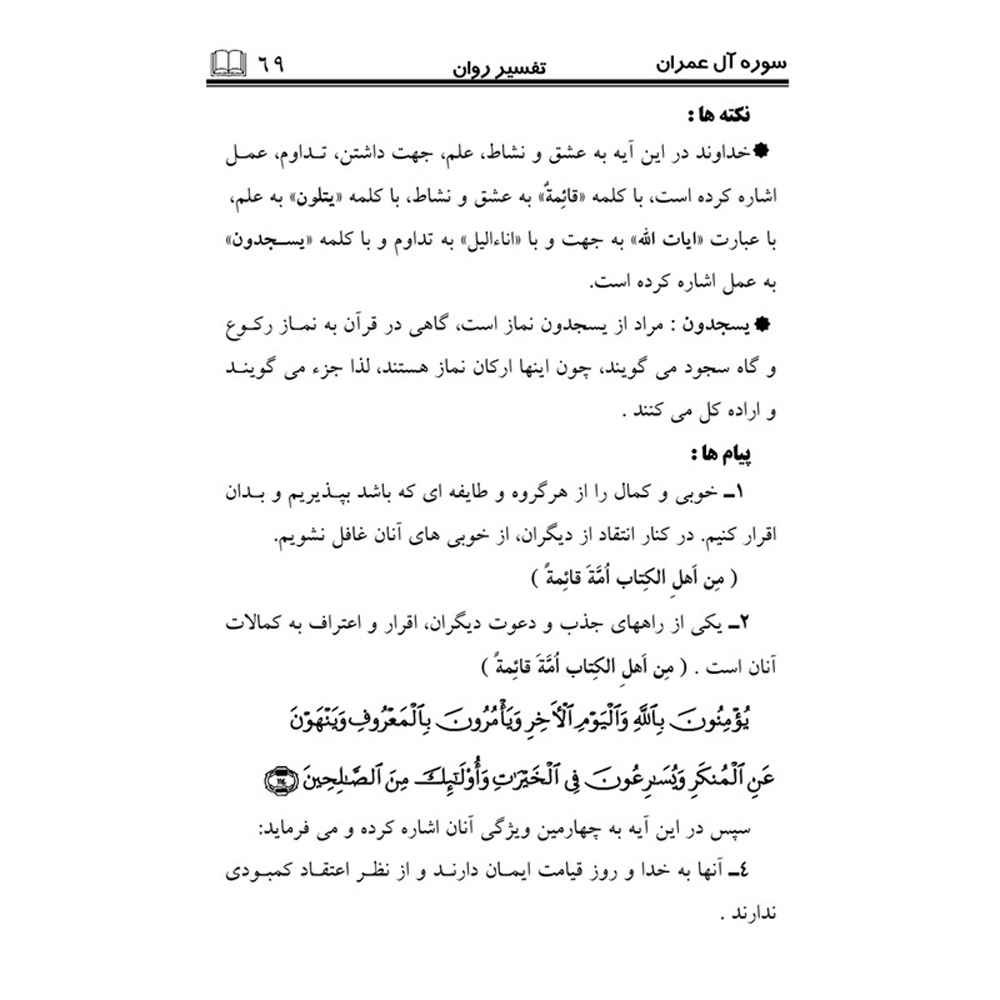 سوره آل عمران تفسیر روان ٦٩
نکته ها :
خداوند در این آیه به عشق و نشاط، علم، جهت داشتن، تـداوم، عمـل
اشاره کرده است، با کلمه «قائِمةٌ» به عشق و نشاط، با کلمه «یتلون» به علم،
با عبارت «ایات الله» به جهت و با «اناءالیل» به تداوم و با کلمه «یسـجدون»
به عمل اشاره کرده است.
یسجدون : مراد از یسجدون نماز است، گاهی در قرآن به نمـاز رکـوع
و گاه سجود می گویند، چون اینها ارکان نماز هستند، لذا جزء می گوینـد
و اراده کل می کنند .
پیام ها :
١ـ خوبی و کمال را از هرگروه و طایفه ای که باشد بپـذیریم و بـدان
اقرار کنیم. در کنار انتقاد از دیگران، از خوبی های آنان غافل نشویم.
( مِن اَهلِ الکِتاب اُمَّةَ قائِمةً )
٢ـ یکی از راههای جذب و دعوت دیگران، اقرار و اعتراف به کمالات
آنان است . ( مِن اَهلِ الکِتاب اُمَّةَ قائِمةً )
يُؤْمِنُونَ بِٱللَّهِ وَٱلْيَوْمِ ٱلْأَخِرِ وَيَأْمُرُونَ بِٱلْمَعْرُوفِ وَيَنْهَوْنَ
عَنِ ٱلْمُنكَرِ وَيُسَٰرِعُونَ فِي ٱلْخَيْرَٰتِ وَأُوْلَٰٓئِكَ مِنَ ٱلصَّٰلِحِينَ ١١٤
سپس در این آیه به چهارمین ویژگی آنان اشاره کرده و می فرماید:
٤ـ آنها به خدا و روز قیامت ایمـان دارنـد و از نظـر اعتقـاد کمبـودی
ندارند .